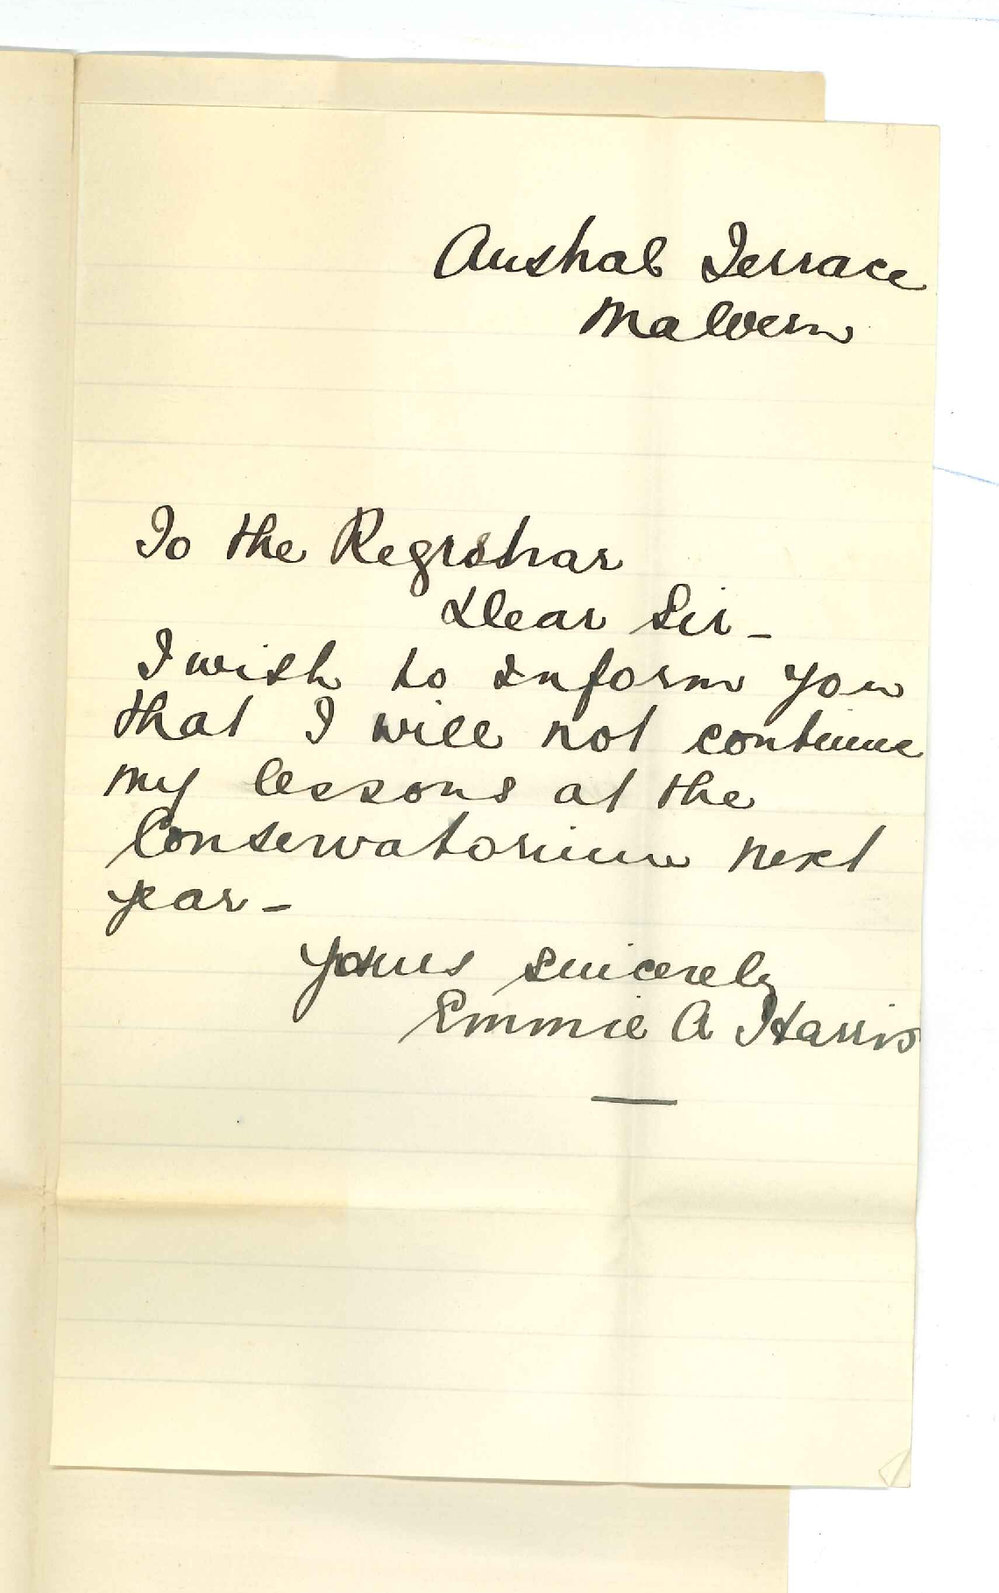 Austral Terrace
Malvern
To the Registrar
Dear Sir -
I wish to inform you
that I will not continue
my lessons at the
Conservatorium next
year -
Yours sincerely
Emmie A Harris